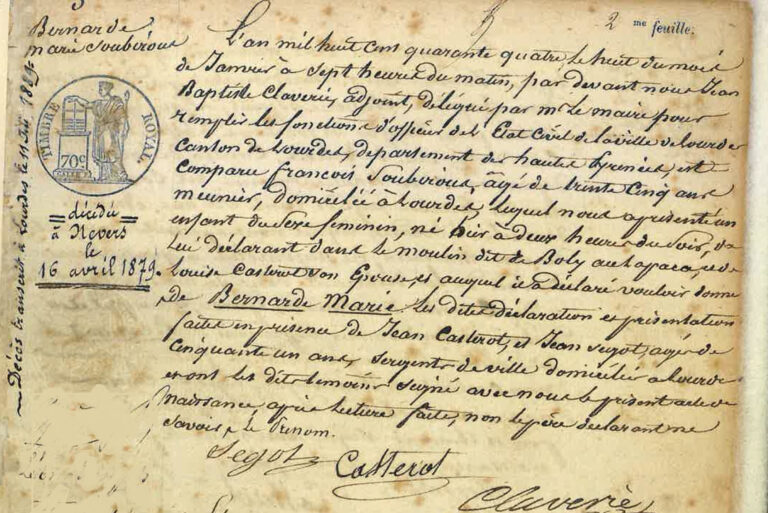 2 me feuille.
Bernarde
Marie Soubirous
TIMBRE ROYAL.
70c
décédée
à Nevers
le
16 avril 1879.
Décès transcrit à Lourdes le 11
L'an mil huit cent quarante quatre le huit du mois
de Janvier à sept heures du matin, par devant nous Jean
Baptiste Claverie, adjoint, délégué par Mr le maire pour
remplir les fonctions d'officier de l'Etat Civil de la ville de Lourdes
Canton de Lourdes, département des hautes Pyrénées, est
Comparu françois Soubirous, âgé de trente Cinq ans
meunier, domicilié à Lourdes, lequel nous a présenté un
enfant du Sexe feminin, né hier à deux heures du Soir, de
lui déclarant dans le moulin dit de Boly au lapaca, et de
Louise Casterot son Epouse, et auquel il a déclaré vouloir donner
de Bernarde Marie. Les dites déclaration et présentation
faites en présence de Jean Casterot, et Jean Segot, agés de
Cinquante un ans, Sergents de ville domiciliés à Lourdes
et ont les dits temoins Signé avec nous le présent acte de
naissance, après lecture faite, non le père déclarant ne
Savoir, le prenom.
Segot Casterot
Claverie